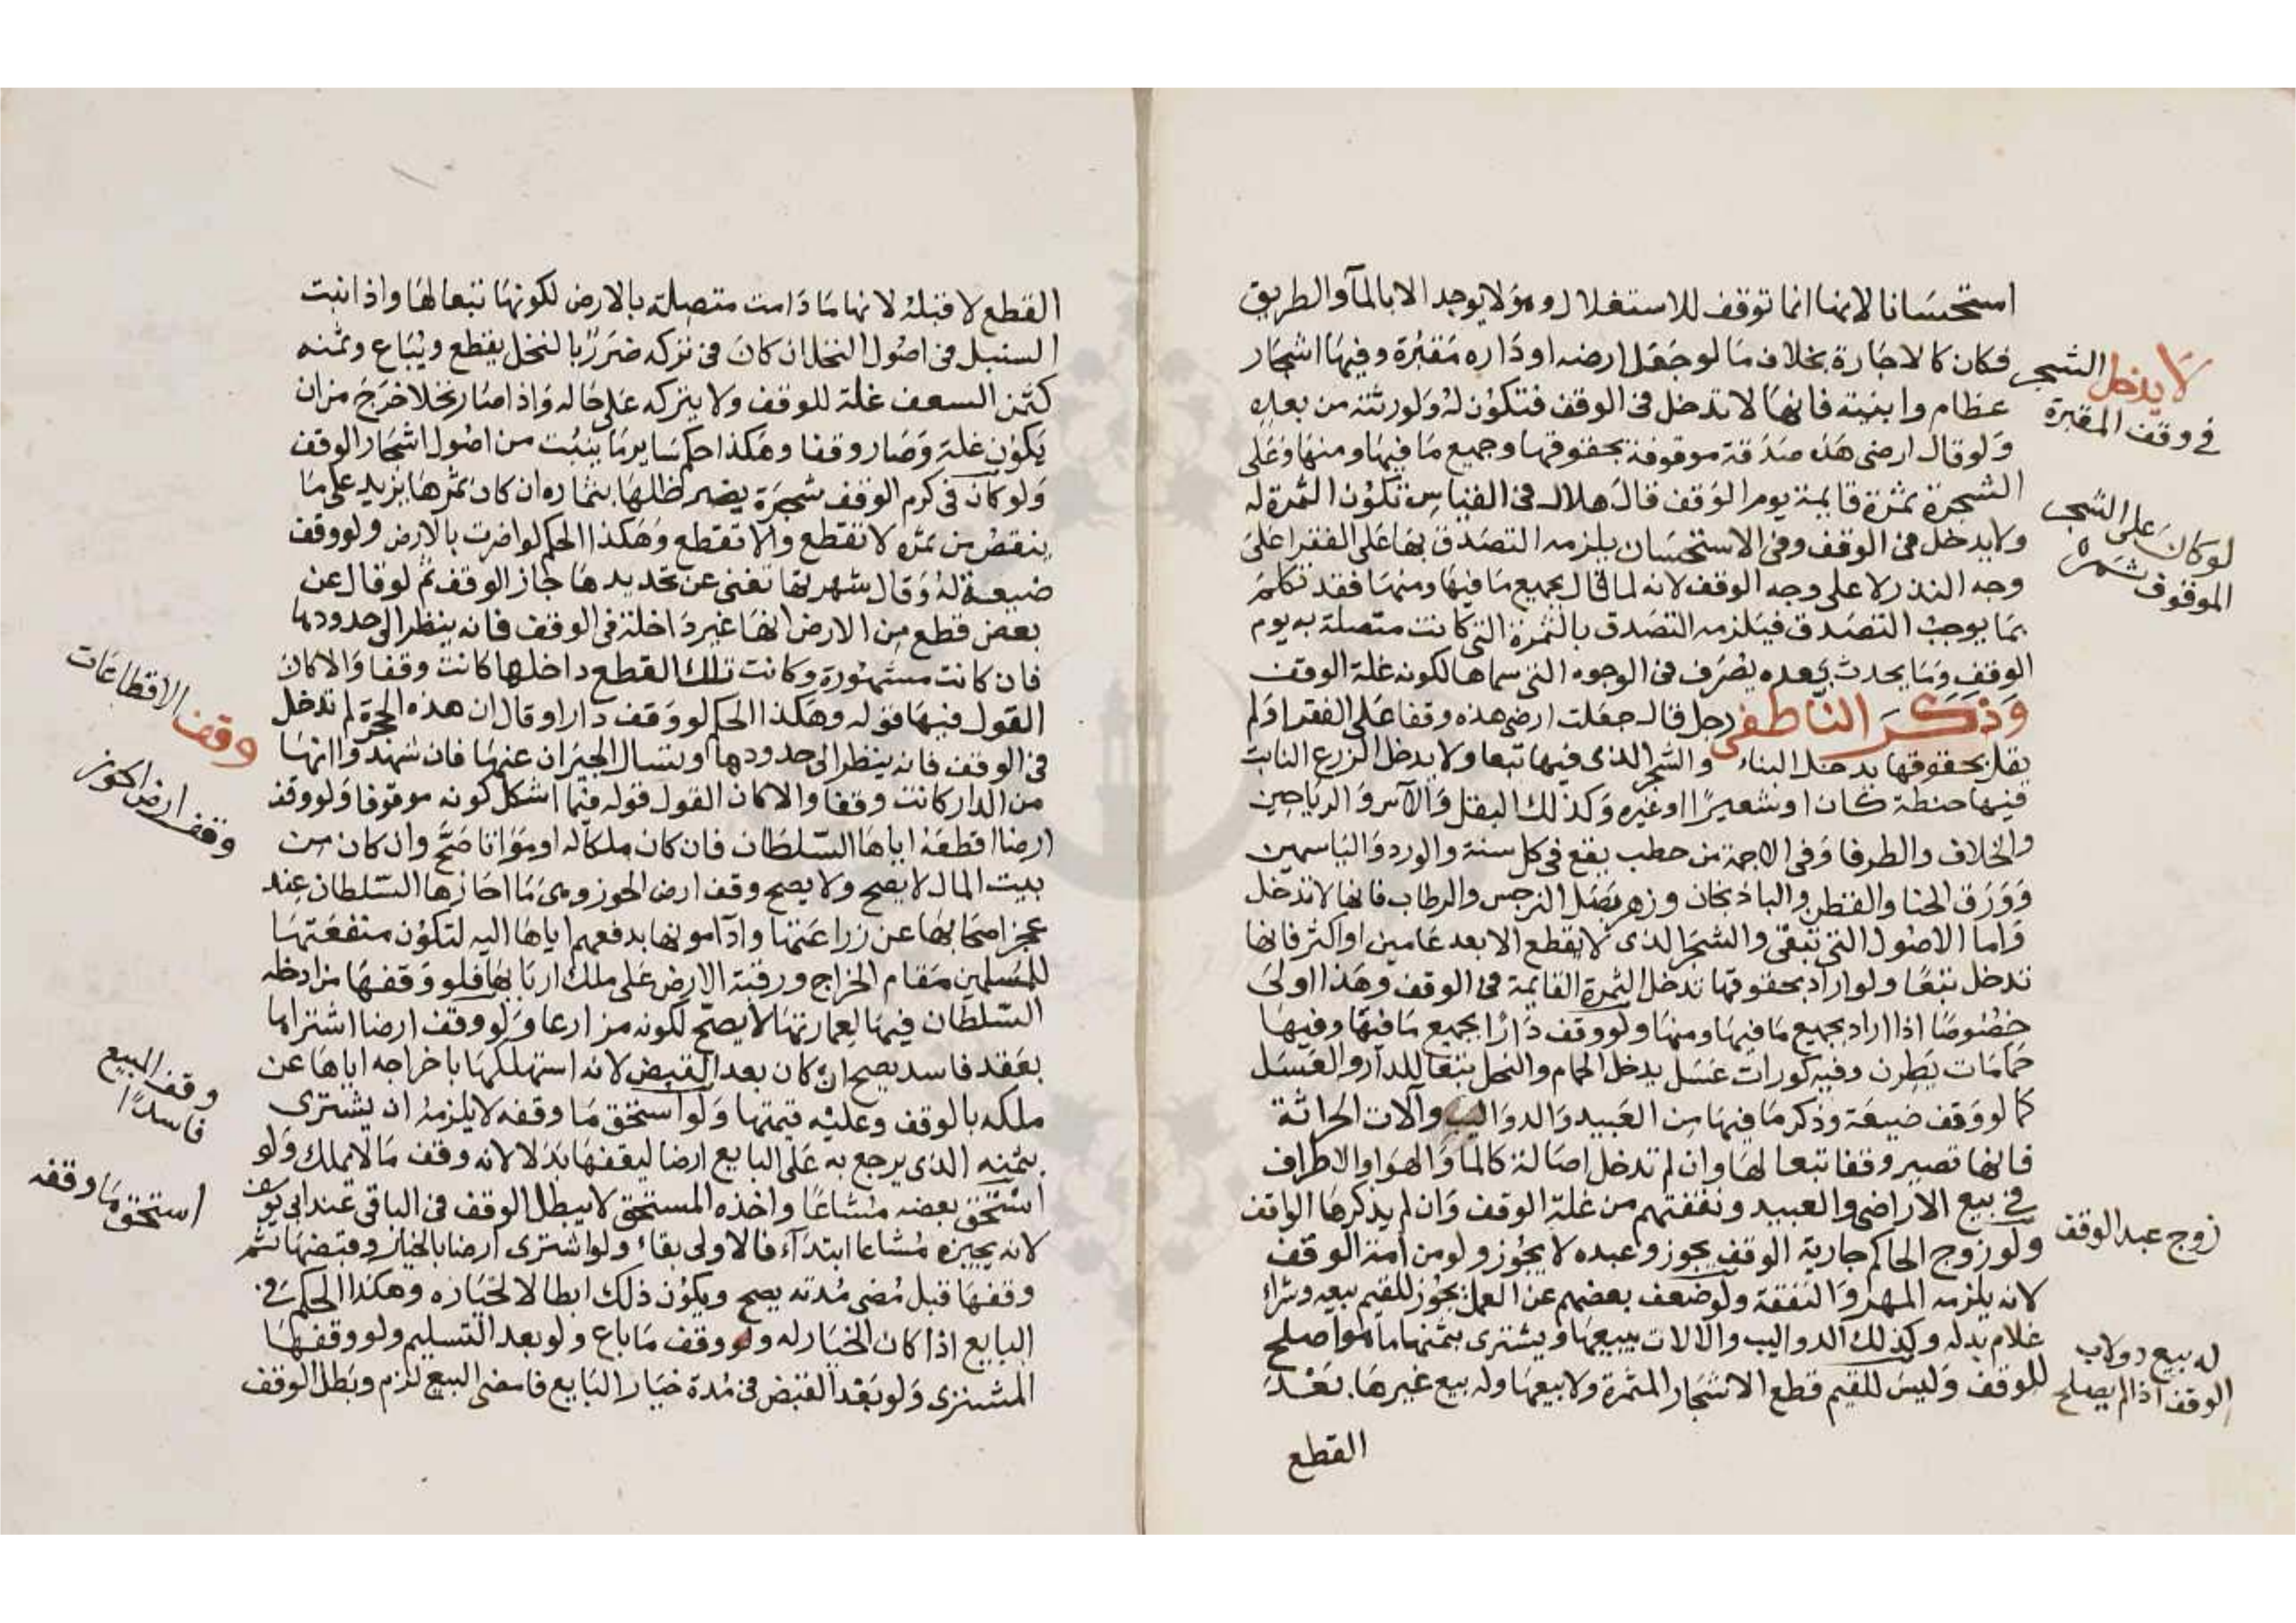 استحسانا لانها انما توقف للاستغلال وهو لا يوجد الا بالمآ والطريق
فكان كالاجارة بخلاف ما لو جعل ارضه او داره مقبرة وفيها اشجار
عظام وابنية فانها لا تدخل فى الوقف فتكون له ولورثته من بعده
ولو قال ارضى هذه صدقة موقوفة بحقوقها وجميع ما فيها ومنها وعلى
الشجرة ثمرة قايمة يوم الوقف قال هلال فى القياس تكون الثمرة له
ولا يدخل فى الوقف وفى الاستحسان يلزمه التصدق بها على الفقرا على
وجه النذر لا على وجه الوقف لانه لما قال بجميع ما فيها ومنها فقد تكلم
بما يوجب التصدق فيلزمه التصدق بالثمرة التى كانت متصلة به يوم
الوقف وما يحدث بعده يصرف فى الوجوه التى سماها لكونه غلة الوقف
وذكر الناطفى رجل قال جعلت ارضى هذه وقفا على الفقرا ولم
يقل بحقوقها يدخل البناء والشجر الذى فيها تبعا ولا يدخل الزرع النابت
فيها حنطة كان او شعيرا او غيره وكذلك البقل والآس والرياحين
والخلاف والطرفا وفى الاجمة من حطب يقع فى كل سنة والورد والياسمين
وورق الحنا والقطن والباذنجان وزهر بصل النرجس والرطاب فانها لا تدخل
واما الاصول التى تبقى والشجر الذى لا يقطع الا بعد عامين او اكثر فانها
تدخل تبعا ولو اراد بحقوقها تدخل الثمرة القايمة فى الوقف وهذا اولى
خصوصا اذا اراد بجميع ما فيها ومنها ولو وقف دارا بجميع ما فيها وفيها
حمامات يطرن وفيه كورات عسل يدخل الحمام والنحل تبعا للدار والعسل
كما لو وقف ضيعة وذكر ما فيها من العبيد والدواليب وآلات الحراثة
فانها تصير وقفا تبعا لها وان لم تدخل اصالة كالما والهوا والاطراف
فى بيع الاراضى والعبيد ونفقتهم من غلة الوقف وان لم يذكرها الواقف
ولو زوج الحاكم جارية الوقف يجوز وعبده لا يجوز ولو من امة الوقف
لانه يلزمه المهر والنفقة ولو ضعف بعضهم عن العمل يجوز للقيم بيعه وشراء
غلام بدله وكذلك الدواليب والآلات يبيعها ويشترى بثمنها ما هو اصلح
للوقف وليس للقيم قطع الاشجار المثمرة ولا بيعها وله بيع غيرها بعد
القطع
لا يدخل الشجر
فى وقف المقبرة
لو كان على الشجر
الموقوف ثمرة
زوج عبد الوقف
له بيع دولاب
الوقف اذا لم يصلح
القطع لا قبله لانها ما دامت متصلة بالارض لكونها تبعا لها واذا نبت
السنبل فى اصول النخل ان كان فى تركه ضررا بالنخل يقطع ويباع وثمنه
كثمن السعف غلة للوقف ولا يتركه على حاله واذا صار نخلا خرج من ان
يكون غلة وصار وقفا وهكذا حكم ساير ما ينبت من اصول اشجار الوقف
ولو كان فى كرم الوقف شجرة يضر ظلها بثماره ان كان ثمرها يزيد على ما
ينقص من ثمره لا تقطع والا تقطع وهكذا الحكم لو اضرت بالارض ولو وقف
ضيعة له وقال شهرتها تغنى عن تحديدها جاز الوقف ثم لو قال عن
بعض قطع من الارض انها غير داخلة فى الوقف فانه ينظر الى حدودها
فان كانت مشهورة وكانت تلك القطع داخلها كانت وقفا والا كان
القول فيها قوله وهكذا الحكم لو وقف دارا وقال ان هذه الحجرة لم تدخل
فى الوقف فانه ينظر الى حدودها ويسال الجيران عنها فان شهدوا انها
من الدار كانت وقفا والا كان القول قوله فيما اشكل كونه موقوفا ولو وقف
ارضا اقطعه اياها السلطان فان كان ملكا له او مواتا صح وان كان من
بيت المال لا يصح ولا يصح وقف ارض الحوز وهى ما احازها السلطان عند
عجز اصحابها عن زراعتها وادآ مونها بدفعهم اياها اليه لتكون منفعتها
للمسلمين مقام الخراج ورقبة الارض على ملك اربابها فلو وقفها من ادخله
السلطان فيها لعمارتها لا يصح لكونه مزارعا ولو وقف ارضا اشتراها
بعقد فاسد يصح ان كان بعد القبض لانه استهلكها باخراجه اياها عن
ملكه بالوقف وعليه قيمتها ولو استحق ما وقفه لا يلزمه ان يشترى
بثمنه الذى يرجع به على البايع ارضا ليقفها بدلا لانه وقف ما لا يملك ولو
استحق بعضه مشاعا واخذه المستحق لا يبطل الوقف فى الباقى عند ابى يوسف
لانه يجيزه مشاعا ابتدآء فالاولى بقاء ولو اشترى ارضا بالخيار وقبضها ثم
وقفها قبل مضى مدته يصح ويكون ذلك ابطالا لخياره وهكذا الحكم فى
البايع اذا كان الخيار له ولو وقف ما باع ولو بعد التسليم ولو وقفها
المشترى ولو بعد القبض فى مدة خيار البايع فامضى البيع لزم وبطل الوقف
وقف الاقطاعات
وقف ارض الحوز
وقف المبيع
فاسدا
استحق ما وقفه